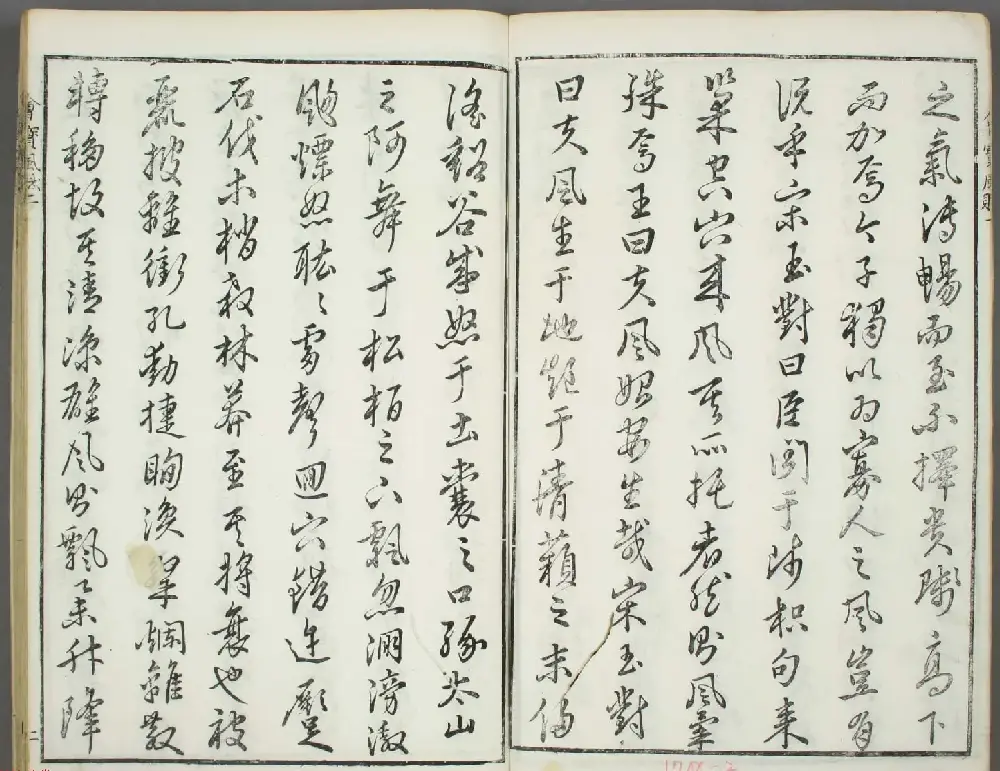 之氣溥暢而至不擇貴賤高下
而加焉今子獨以為寡人之風豈有
說乎宋玉對曰臣聞于師枳句來
巢空穴來風其所托者然則風氣
殊焉王曰夫風始安生哉宋玉對
曰夫風生于地起于清蘋之末侵
淫谿谷盛怒于土囊之口緣泰山
之阿舞于松柏之下飄忽淜滂激
颺熛怒耾〻雷聲迴穴錯迕蹷
石伐木梢殺林莽至其將衰也被
麗披離衝孔動揵眴渙粲爛離散
轉移故其清涼雄風則飄舉升降
二